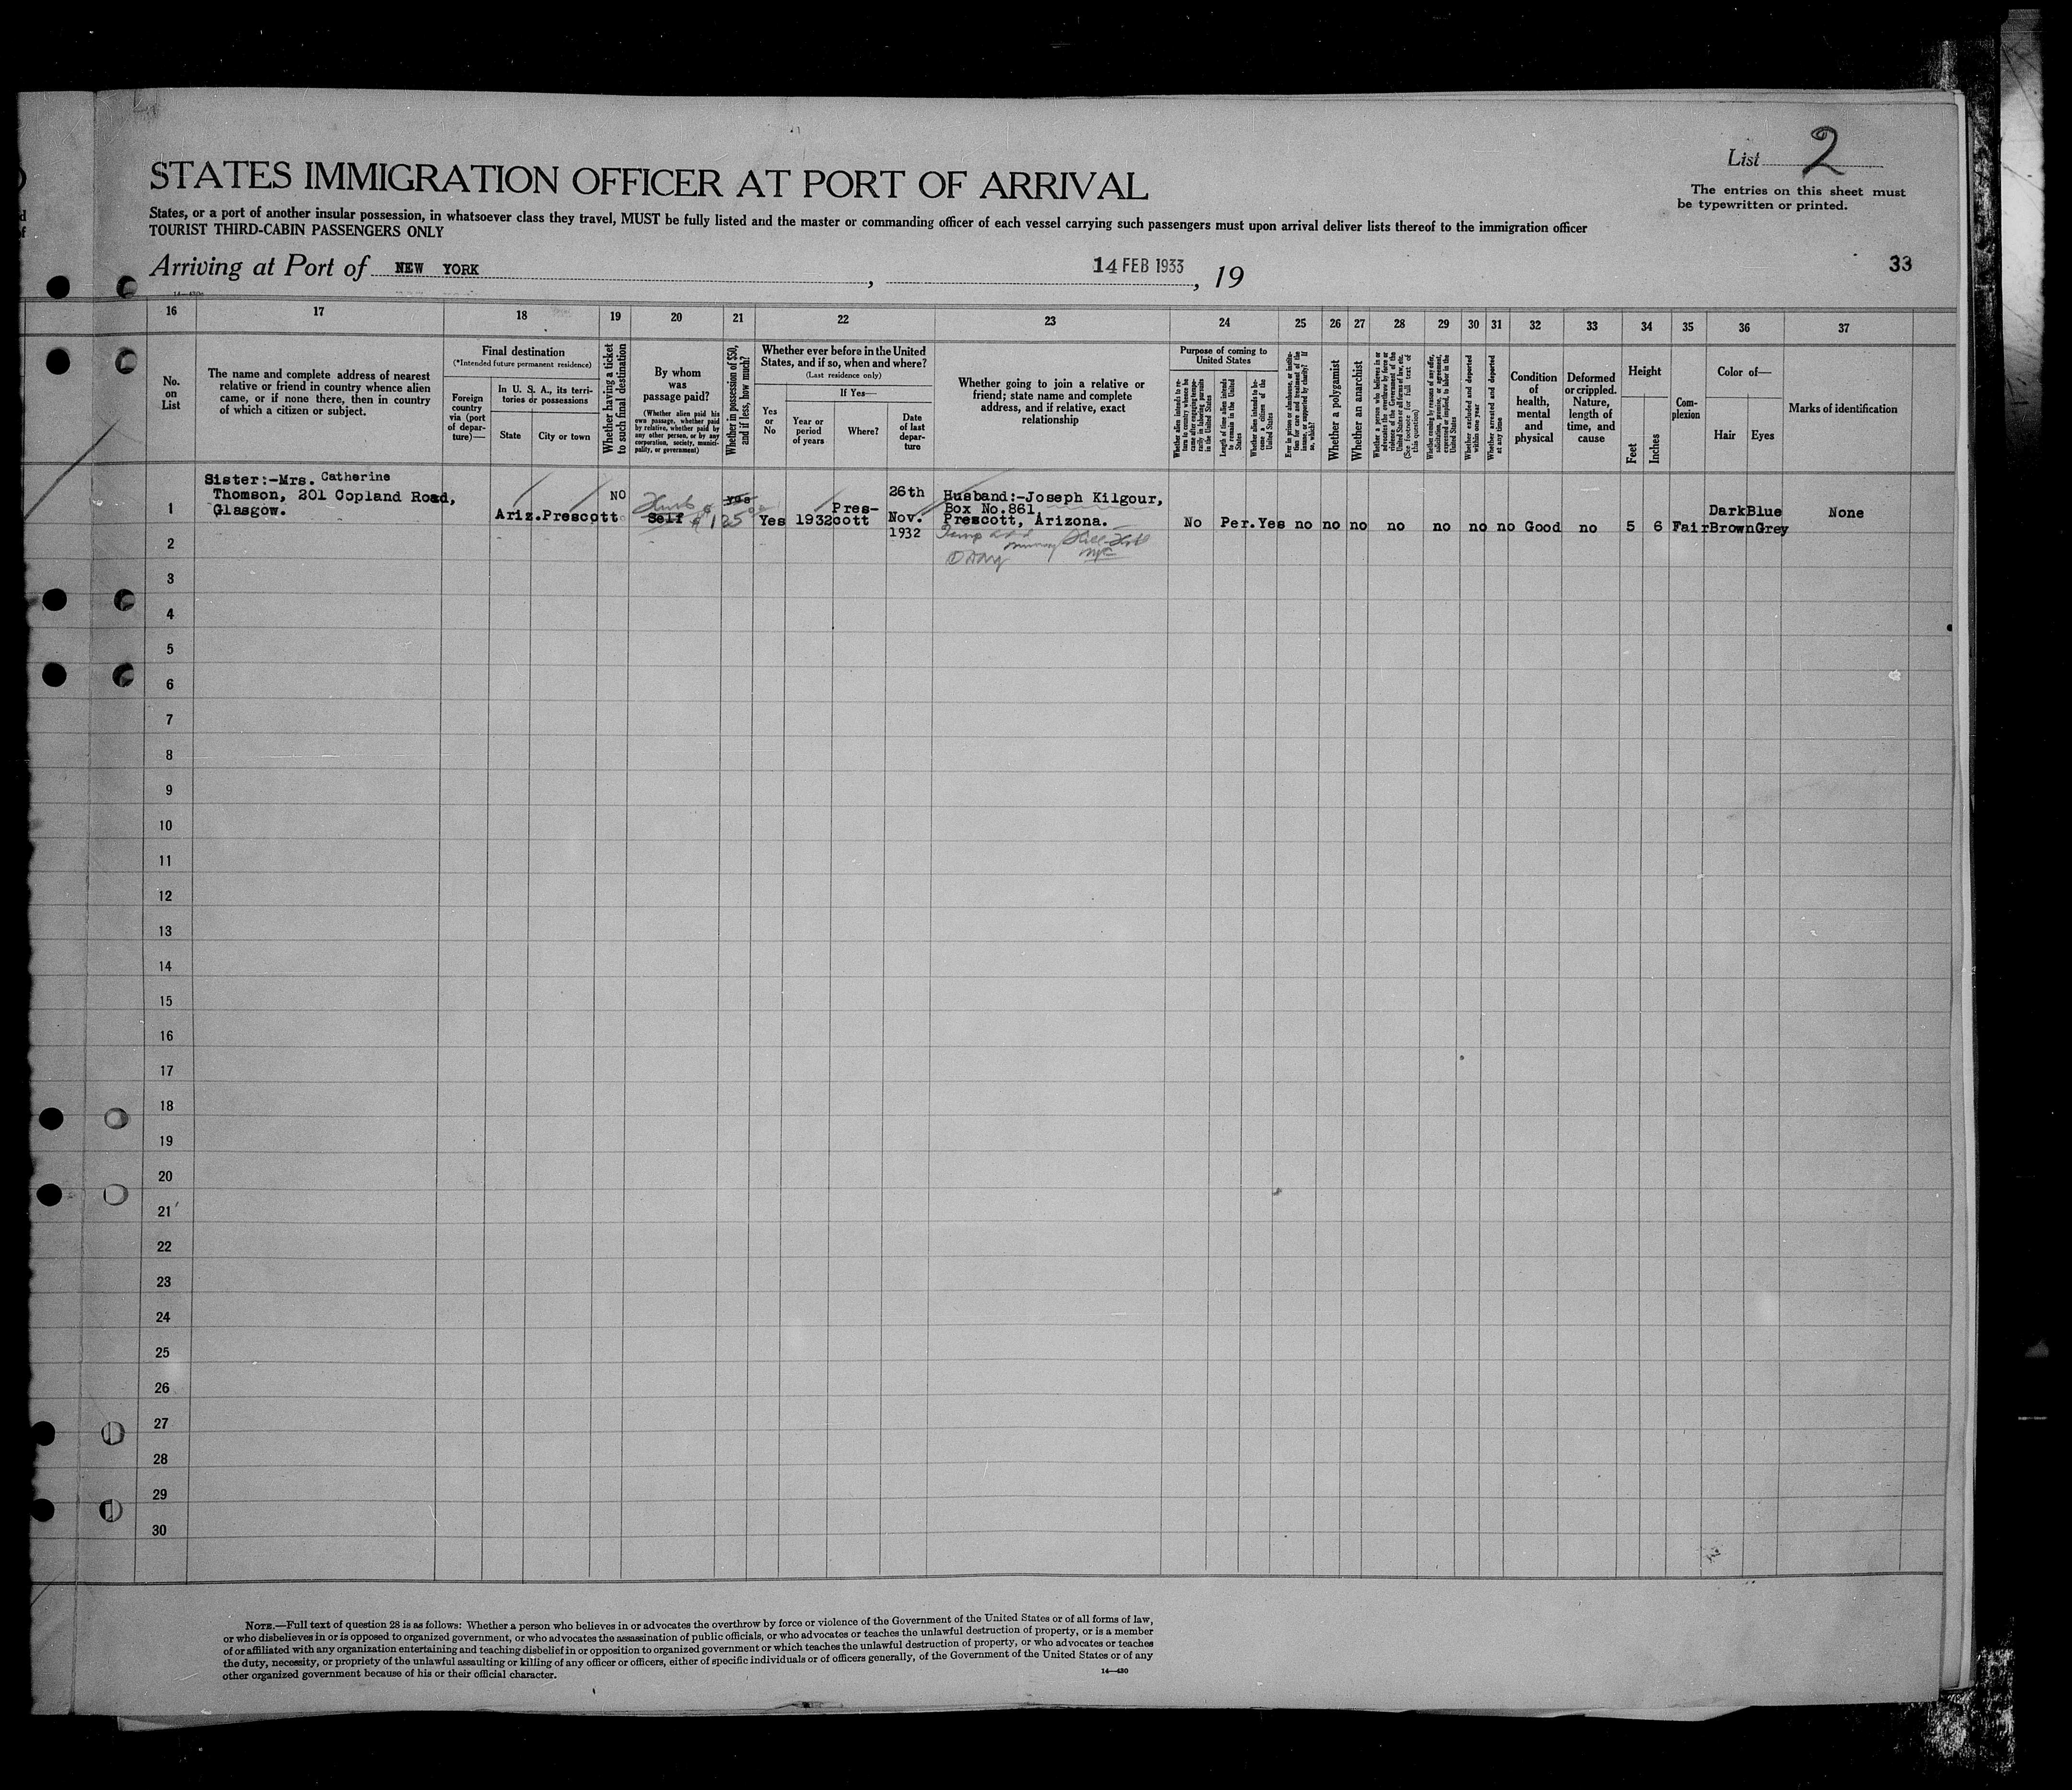 List 2
The entries on this sheet must
be typewritten or printed.
STATES IMMIGRATION OFFICER AT PORT OF ARRIVAL
States, or a port of another insular possession, in whatsoever class they travel, MUST be fully listed and the master or commanding officer of each vessel carrying such passengers must upon arrival deliver lists thereof to the immigration officer
TOURIST THIRD-CABIN PASSENGERS ONLY
Arriving at Port of NEW YORK, 14 FEB 1933, 19
33
16 17 18 19 20 21 22 23 24 25 26 27 28 29 30 31 32 33 34 35 36 37
No.
on
List
The name and complete address of nearest
relative or friend in country whence alien
came, or if none there, then in country
of which a citizen or subject.
Final destination
(*Intended future permanent residence)
Foreign
country
via (port
of depar-
ture)—
In U. S. A., its terri-
tories or possessions
State
City or town
Whether having a ticket
to such final destination
By whom
was
passage paid?
(Whether alien paid his
own passage, whether paid
by relative, whether paid by
any other person, or by any
corporation, society, munici-
pality, or government)
Whether in possession of $50,
and if less, how much?
Whether ever before in the United
States, and if so, when and where?
(Last residence only)
Yes
or
No
If Yes—
Year or
period
of years
Where?
Date
of last
depar-
ture
Whether going to join a relative or
friend; state name and complete
address, and if relative, exact
relationship
Purpose of coming to
United States
Whether alien intends to re-
turn to country whence he
came after engaging tempo-
rarily in laboring pursuits
in the United States
Length of time alien intends
to remain in the United
States
Whether alien intends to be-
come a citizen of the
United States
Ever in prison or almshouse, or institu-
tion for care and treatment of the
insane, or supported by charity? If
so, which?
Whether a polygamist
Whether an anarchist
Whether a person who believes in or
advocates the overthrow by force or
violence of the Government of the
United States or all forms of law, etc.
(See footnote for full text of
this question)
Whether coming by reason of any offer,
solicitation, promise, or agreement,
expressed or implied, to labor in the
United States
Whether excluded and deported
within one year
Whether arrested and deported
at any time
Condition
of
health,
mental
and
physical
Deformed
or crippled.
Nature,
length of
time, and
cause
Height
Feet
Inches
Com-
plexion
Color of—
Hair
Eyes
Marks of identification
1
Sister:-Mrs. Catherine
Thomson, 201 Copland Road,
Glasgow.
Ariz. Prescott
NO
Self
Yes
$125
Yes 1932
Pres-
cott
26th
Nov.
1932
Husband:-Joseph Kilgour,
Box No.861,
Prescott, Arizona.
No Per. Yes no no no no no no no Good no 5 6 Fair
Dark
Brown
Blue
Grey
None
2
3
4
5
6
7
8
9
10
11
12
13
14
15
16
17
18
19
20
21
22
23
24
25
26
27
28
29
30
NOTE.—Full text of question 28 is as follows: Whether a person who believes in or advocates the overthrow by force or violence of the Government of the United States or of all forms of law,
or who disbelieves in or is opposed to organized government, or who advocates the assassination of public officials, or who advocates or teaches the unlawful destruction of property, or is a member
of or affiliated with any organization entertaining and teaching disbelief in or opposition to organized government or which teaches the unlawful destruction of property, or who advocates or teaches
the duty, necessity, or propriety of the unlawful assaulting or killing of any officer or officers, either of specific individuals or of officers generally, of the Government of the United States or of any
other organized government because of his or their official character.
14—430